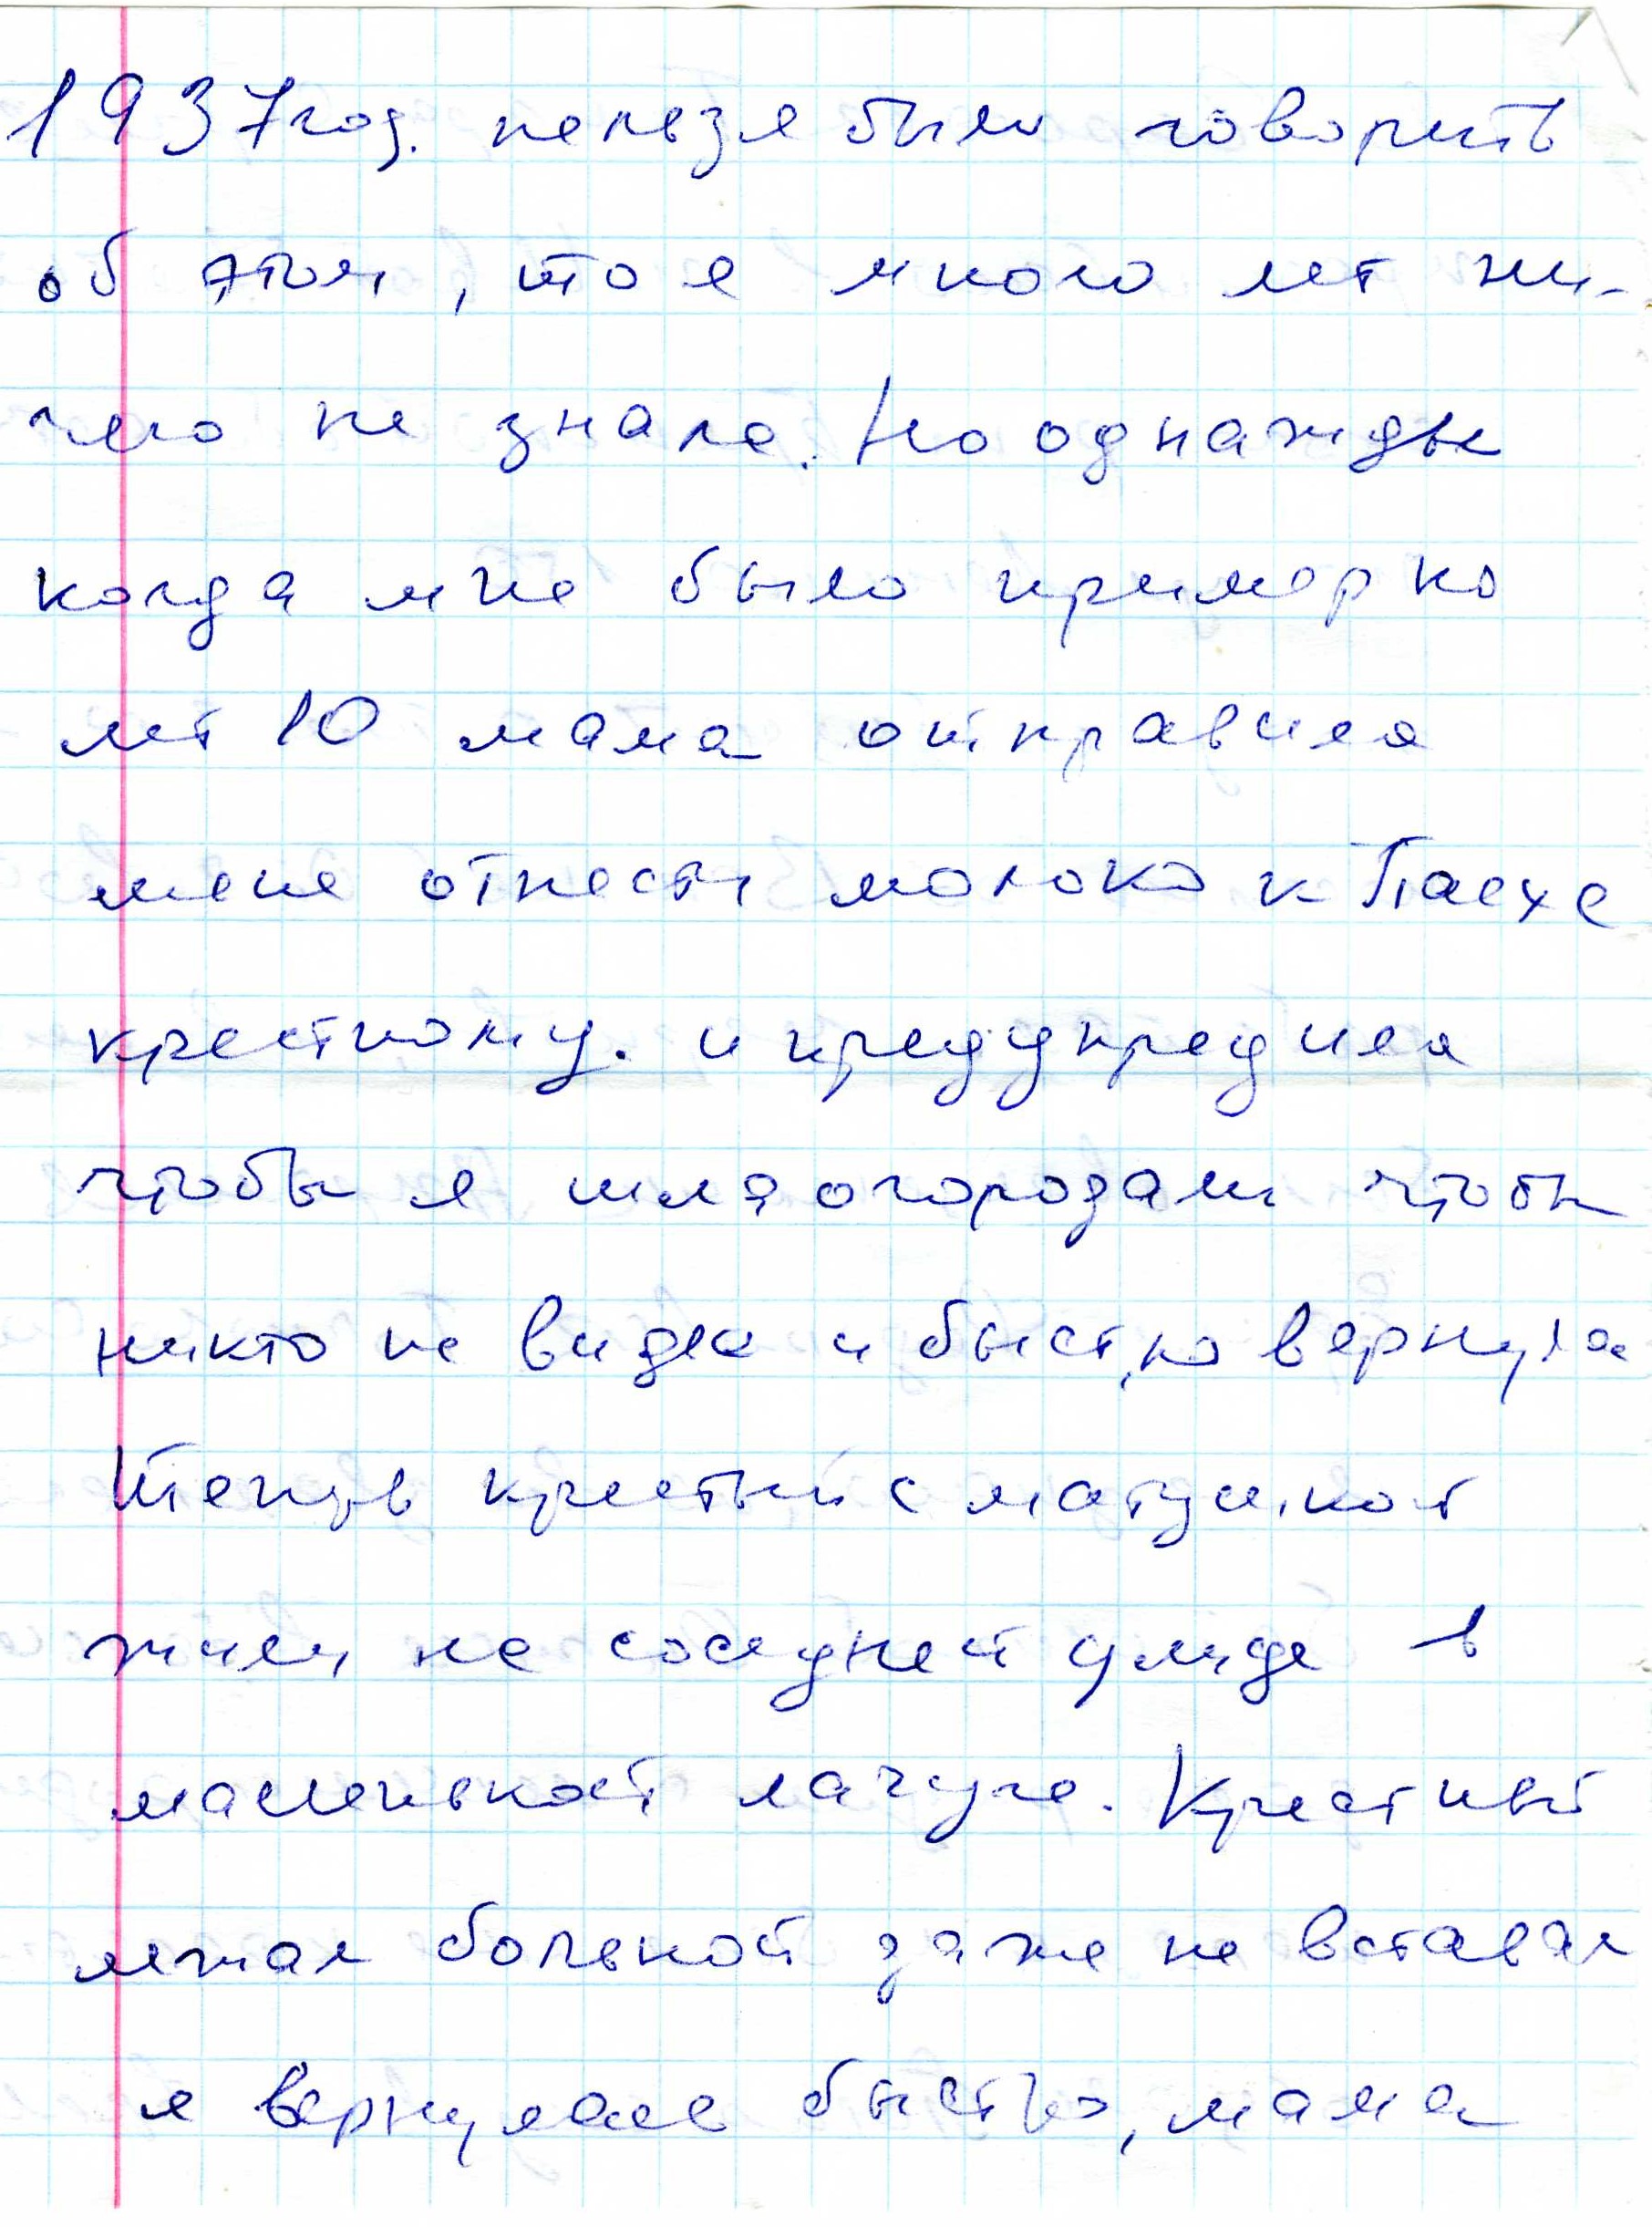 1937 год. нельзя было говорить
об этом, что я много лет ни-
чего не знала. Но однажды
когда мне было примерно
лет 10 мама отправила
меня отнести молоко к Пасхе
крестному. и предупредила
чтобы я шла огородами чтобы
никто не видел и быстро вернулась
Теперь крестный с матушкой
жили на соседней улице в
маленькой лачуге. Крестный
лежал больной даже не вставал
я вернулась быстро, мама